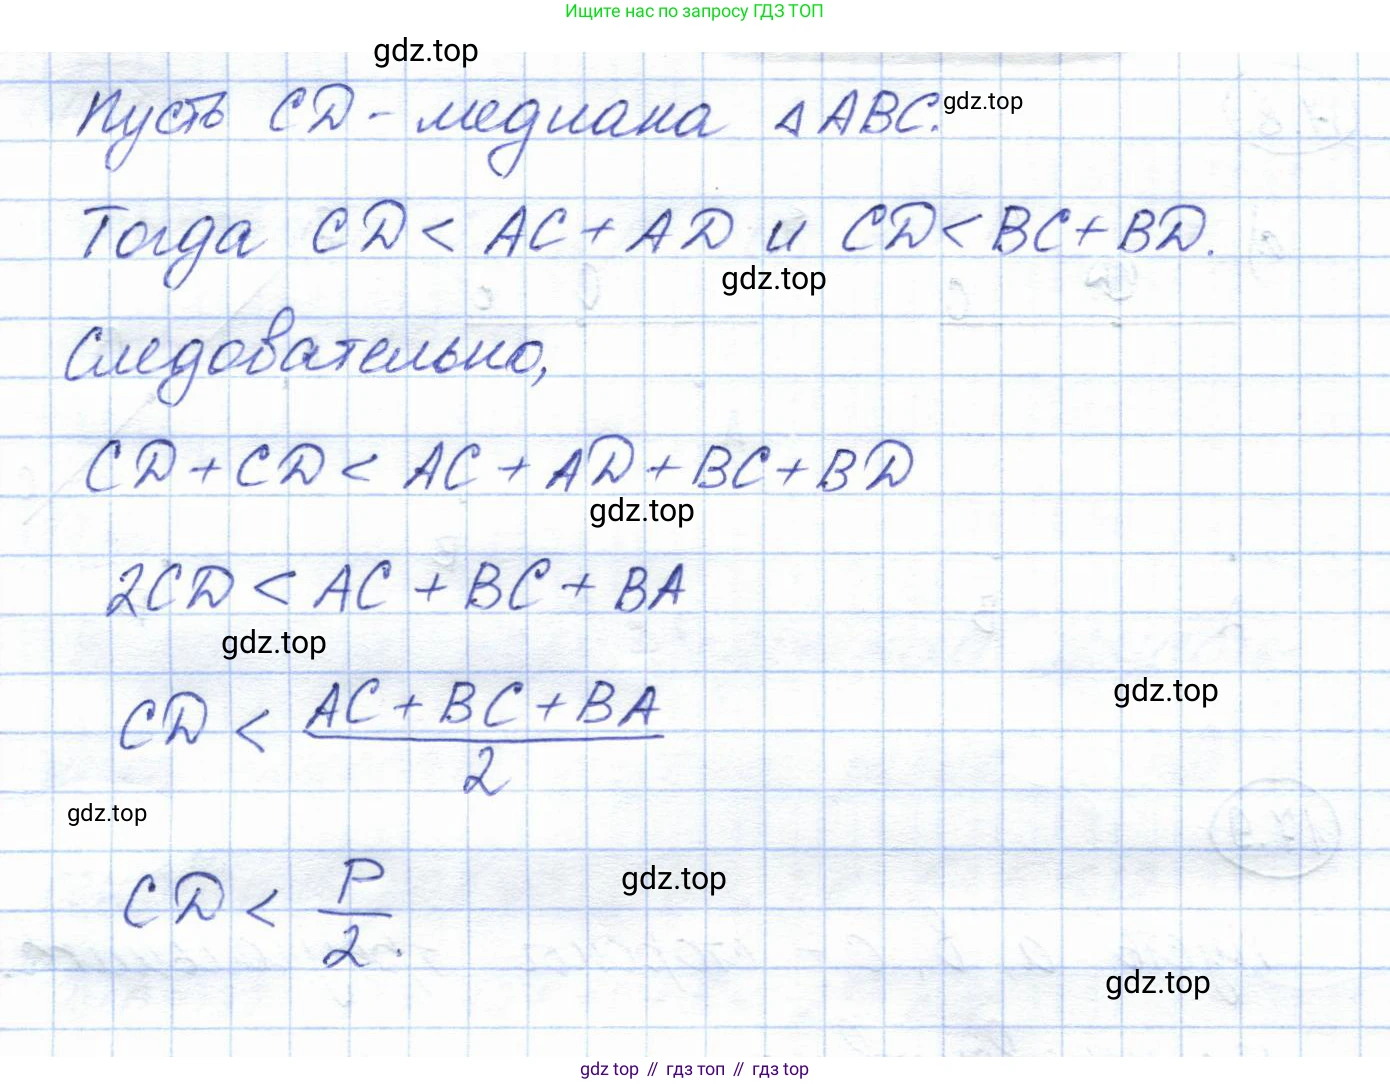 Ищите нас по запросу ГДЗ ТОП
gdz.top
Пусть CD - медиана △ ABC.
gdz.top
Тогда CD < AC + AD и CD < BC + BD.
gdz.top
Следовательно,
CD + CD < AC + AD + BC + BD
gdz.top
2CD < AC + BC + BA
gdz.top
gdz.top
CD < \frac{AC + BC + BA}{2}
gdz.top
CD < \frac{P}{2}.
gdz.top
gdz.top
gdz top // гдз топ // гдз top